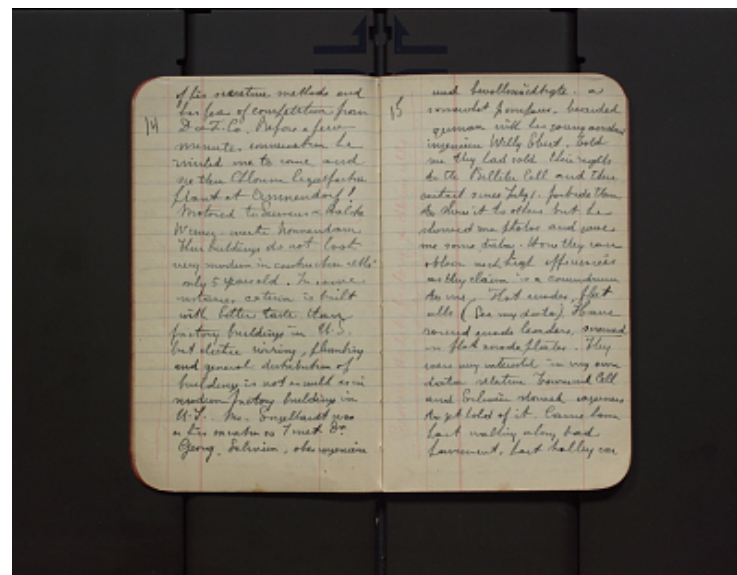 of his secretive methods and
his fear of competition from
14
D. & F. Co. Before a few
minutes conversation he
invited me to come and
see their Chlorine Liquefaction
plant at Ammendorf!
Motored to Siemens & Halske
Werner-werke Nonnendam
Their buildings do not look
very modern in construction altho'
only 5 years old. In some
instances exterior is built
with better taste than
factory buildings in U.S.
but electric wiring, plumbing
and general distribution of
buildings is not as well as in
modern factory buildings in
U.S. Mr. Engelhardt was
I met Dr.
Georg, ober ingenieur
und bevollmächtigte. a
15
somewhat pompous, bearded
german with his young assistant
ingenieur Willy Ebert. Told
me they had sold their rights
to the Billiter Cell and their
contract since July 1. forbids them
to show it to others but he
showed me photos and gave
me some data. How they can
obtain such high efficiencies
as they claim is a conundrum
to me. Flat anodes, flat
cells (See my data). Have
round anode leaders
in flat anode plates. They
were very interested in my own
data relative Townsend Cell
and showed eagerness
to get hold of it. Came home
part walking along bad
pavement, part trolley car